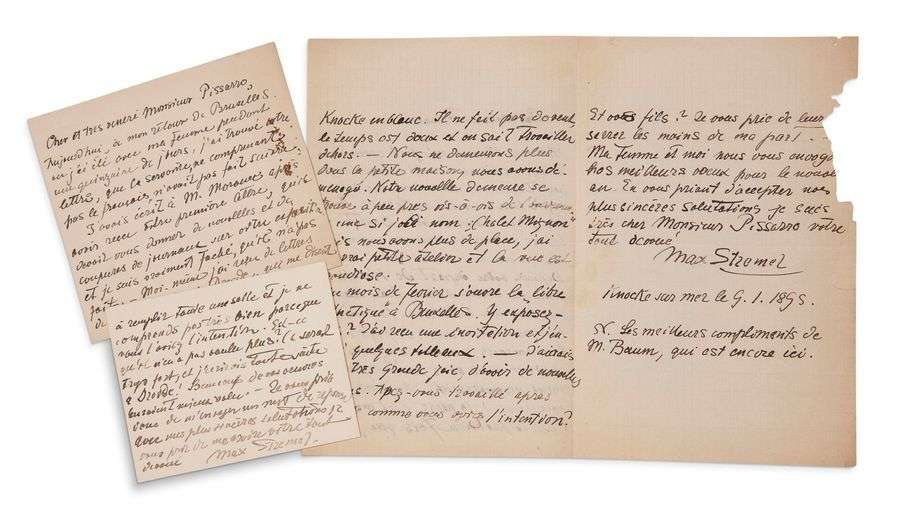 Cher et très vénéré Monsieur Pissarro,
Aujourd'hui, à mon retour de Bruxelles
où j'ai été avec ma femme pendant
une quinzaine de jours, j'ai trouvé votre
lettre, que la servante, ne comprenant
pas le français, n'avait pas fait suivre.
J'avais écrit à M. Moraws après
avoir reçu votre première lettre, qu'il
devait vous donner de nouvelles et de
coupures de journaux sur votre exposit
et je suis vraiment faché, qu'il n'a pas
fait. - Moi même j'ai reçu de lettres
que me disent
à remplir toute une salle et je ne
comprends pas très bien parceque
vous l'aviez l'intention. Est-ce
qu'il n'en a pas voulu plus. Ce serait
trop fort, et j'écrirai tout de suite
à Dresde! Beaucoup de vos oeuvres
- Je vous prie
donc de m'envoyer un mot de réponse
avec mes plus sincères salutations je
vous prie de me croire votre tout
dévoué Max Stremel.
Knocke en blanc. Il ne fait pas de vent
le temps est doux et on sait travailler
dehors. - Nous ne demeurons plus
dans la petite maison, nous avons dé-
menagé. Notre nouvelle demeure se
à peu près vis-à-vis de
si joli nom "Chalet Mignon"
nous avons plus de place, j'ai
vrai petit atelier et la vue est
grandiose.
mois de février s'ouvre la libre
Esthétique à Bruxelles. Y exposez-
? J'ai reçu une invitation et j'en-
quelques tableaux. - J'aurais
très grande joie d'avoir de nouvelles
. Avez-vous travaillé après
comme vous aviez l'intention?
Et vos fils? Je vous prie de leur
serrer les mains de ma part.
Ma femme et moi nous vous envoyo
nos meilleurs voeux pour le nouvel
an. En vous priant d'accepter nos
plus sincères salutations je suis
très cher Monsieur Pissarro votre
tout dévoué
Max Stremel
Knocke sur mer le 9. 1. 1895.
N. Les meilleurs compliments de
M. Baum, qui est encore ici.